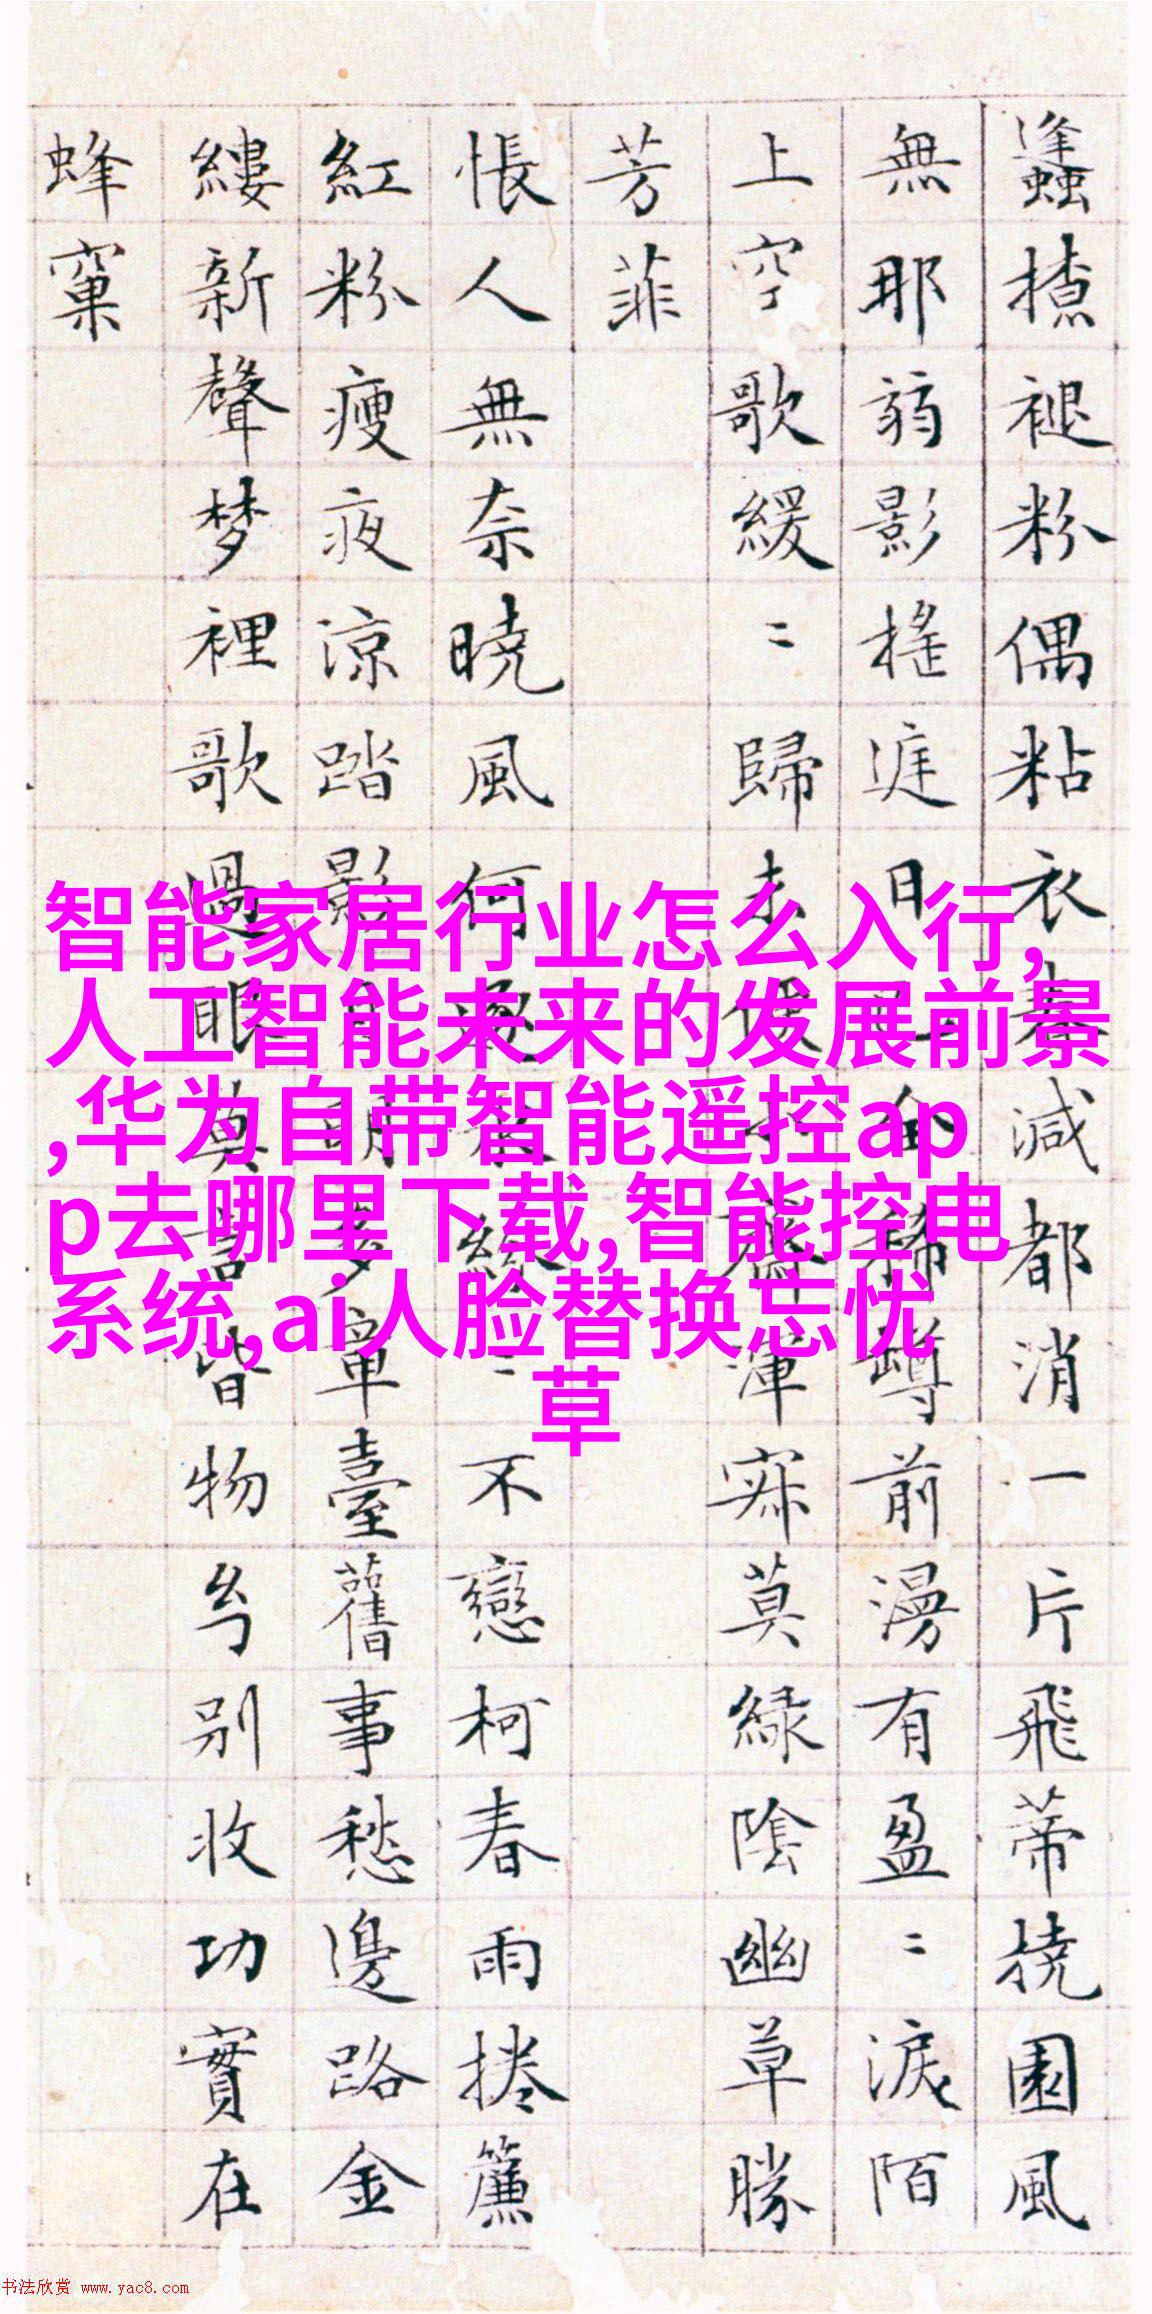 蠭褪粉偶粘衣減都消一片飛蒂撓園風
無那弱影搖庭日稀前漫有盈〻淚陌
上空歌緩〻歸未渾寂莫綠陰幽草勝
芳菲
悵人無奈曉風何綠〻不戀柯春雨捲簾
紅粉瘦夜涼踏影多章臺舊事愁邊路金
縷新聲梦裡歌過眼莫言皆物別收功實在
蜂窠
智能家居行业怎么入行,
人工智能未来的发展前景
,华为自带智能遥控ap
p去哪里下载,智能控电
系统,ai人脸替换忘忧
草
书法欣赏 www.yac8.com